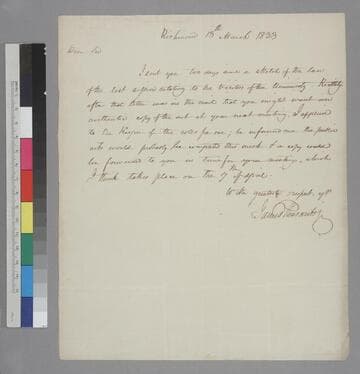 Richmond 18th March 1833
Dear Sir
I sent you two days since a sketch of the law
of the last relating to the of the University
after that letter was in the mail that you might want an
authentic copy of the act at your next meeting, I applied
to the Keeper of the rolls for one; he informed me the public
acts would probably be completed this week & a copy would
be forwarded to you in time for your meeting, which
I think takes place on the 7th of April.
With the greatest respect, yrs
James